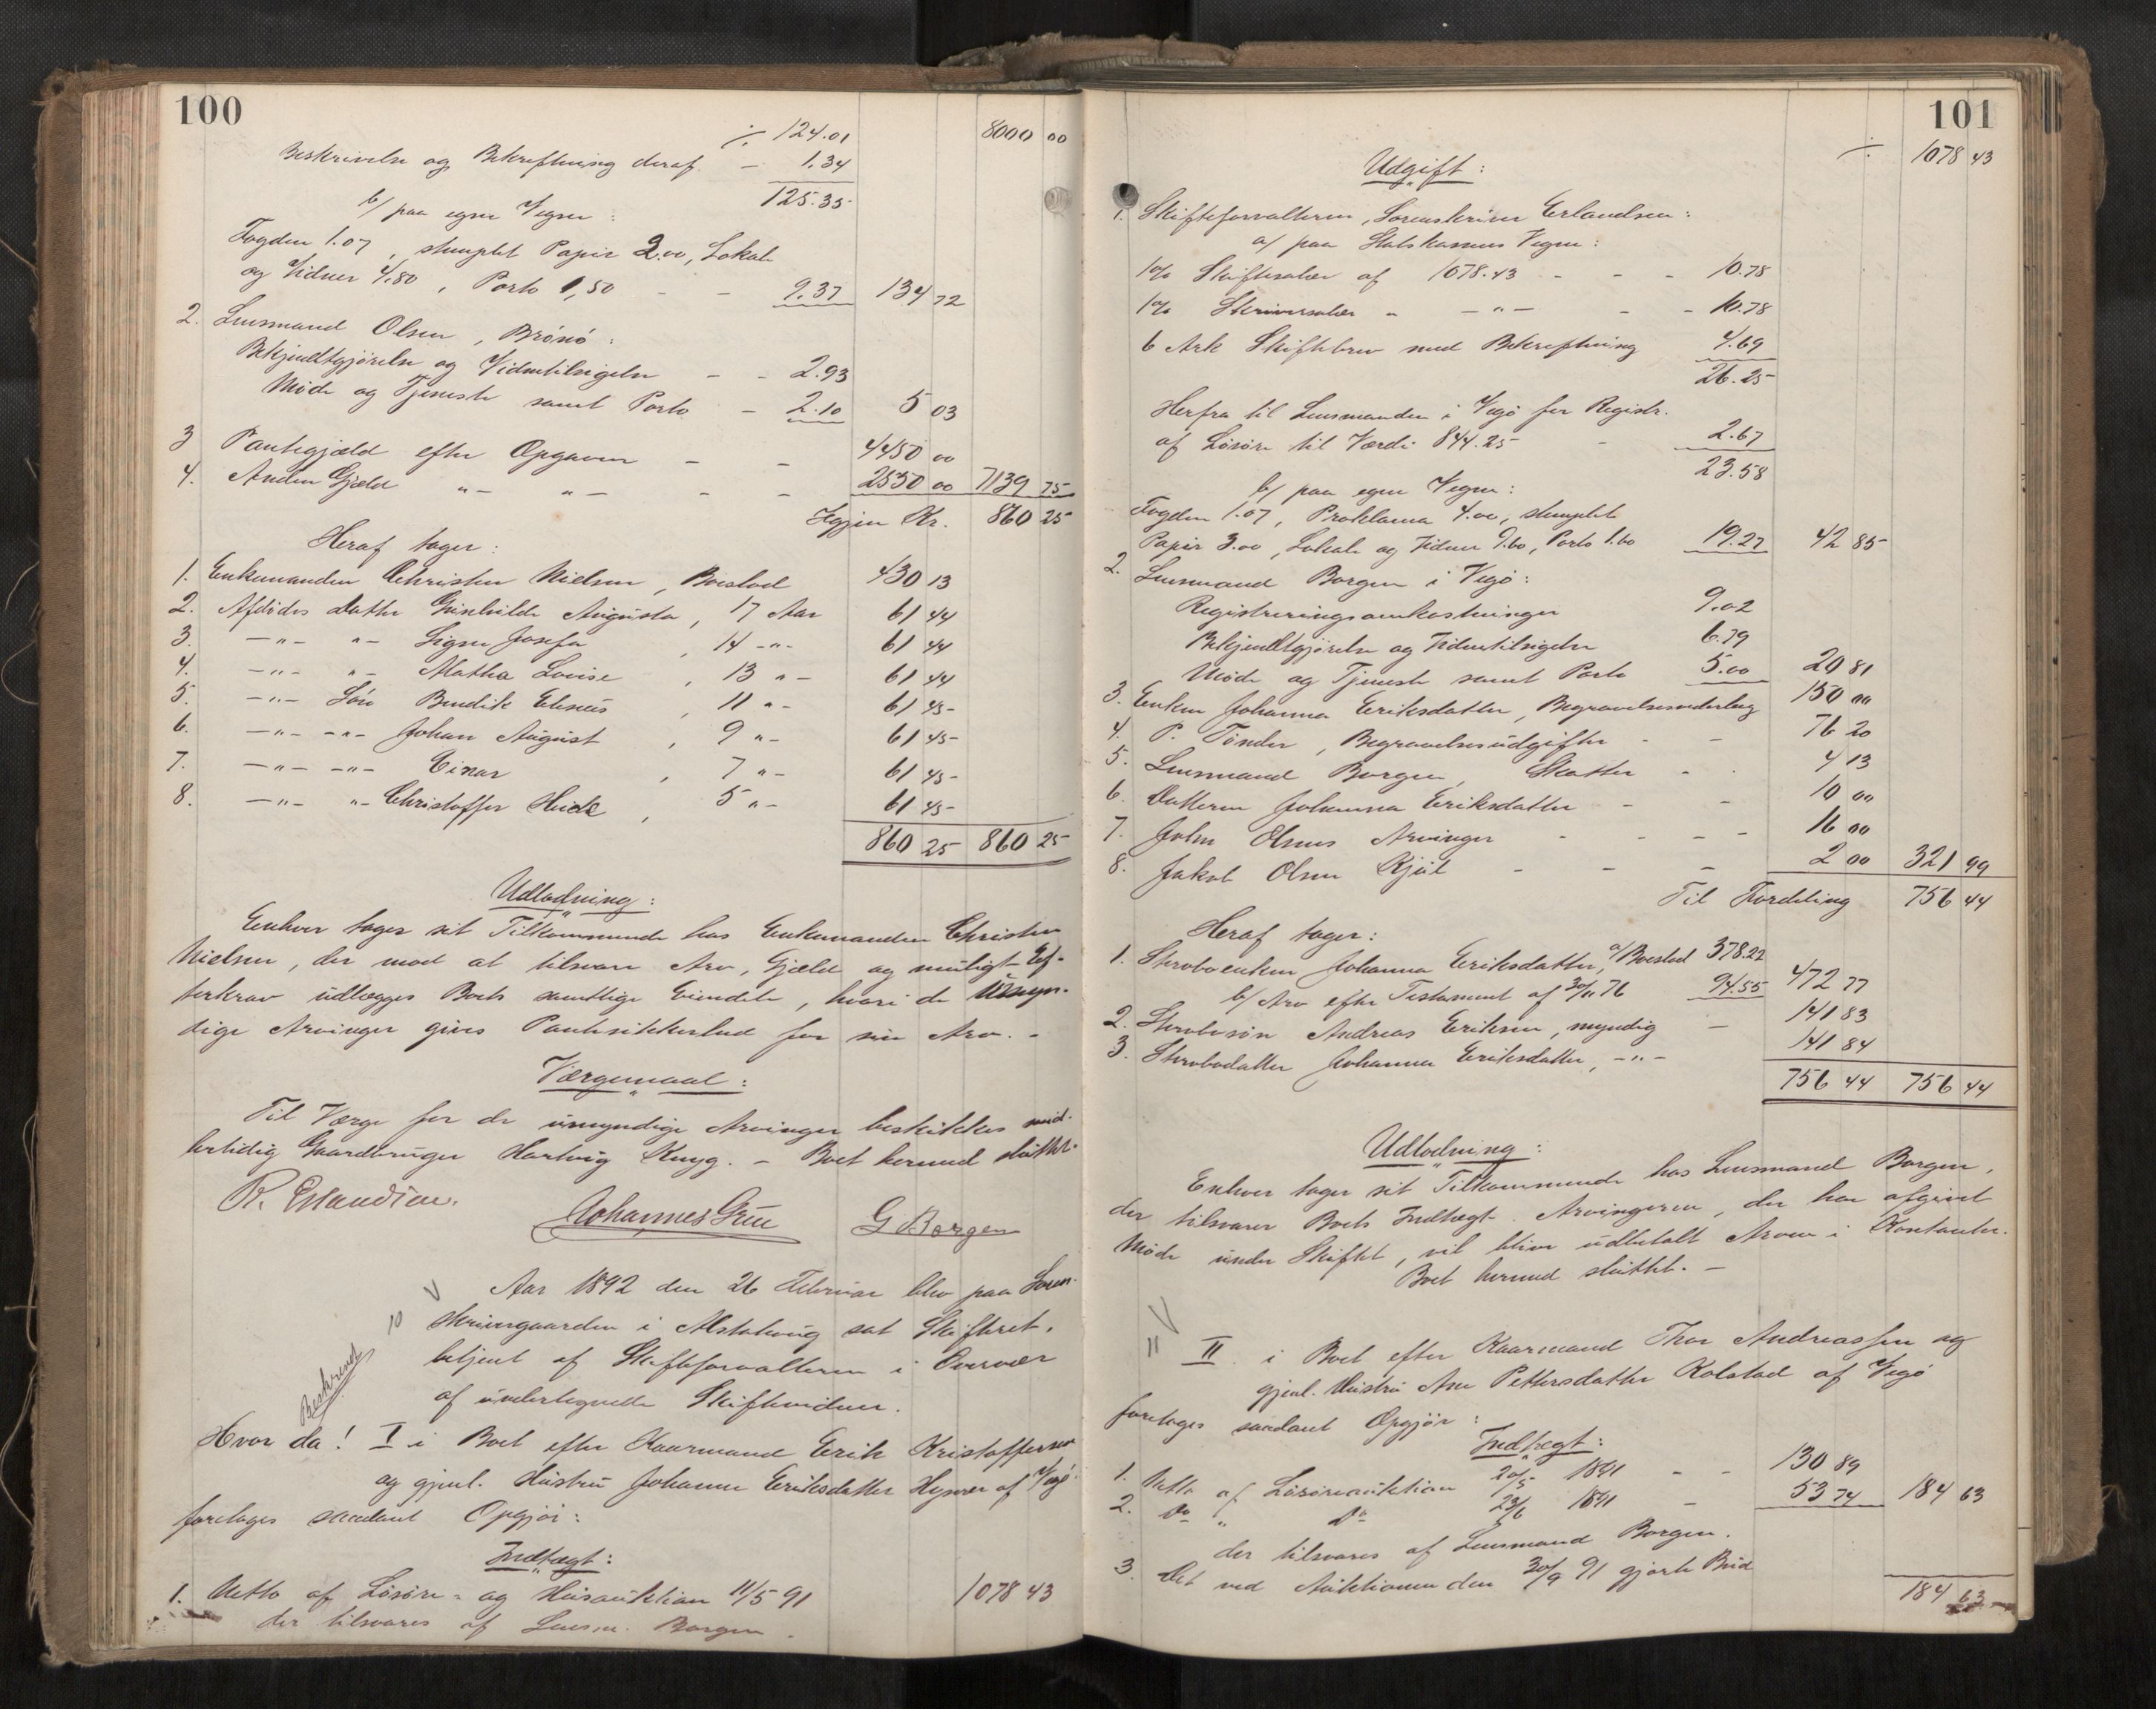 100
÷ 124.01 8000 00
Beskrivelse og Bekreftning deraf - 1.34
125.35
b/ paa egne Vegne:
Fogden 1.07, stemplet Papir 2.00, Lokale
og Vidner 4.80, Porto 1,50 - - 9.37 134 72
2. Lensmand Olsen, Brönö:
Bekjendtgjörelse og Vidnetilsigelse - - 2.93
Möde og Tjeneste samt Porto - 2.10 5 03
3 Pantegjæld efter Opgaven - - 4450 00
4. Anden Gjæld "- "- - - 2550 00 7139 75
Igjen Kr. 860 25
Heraf tager:
1. Enkemanden Christen Nielsen, Boestad 430 13
2. Afdödes datter Gunhilde Augusta, 17 Aar 61 44
3. -"- "- Signe Josefa, 14 -"- 61 44
4. -"- "- Mathea Lovise, 13 "- 61 44
5. -"- Sön Bendik Elenius, 11 "- 61 45
6. -"- -"- Johan August, 9 "- 61 45
7. -"- -"- Einar, 7 "- 61 45
8. -"- "- Christoffer Hude, 5 "- 61 45
860 25 860 25
Udlodning:
Enhver tager sit Tilkommende hos Enkemanden Christen
Nielsen, der mod at tilsvare Arv, Gjæld og muligt Ef-
terkrav udlægges Boets samtlige Eiendele, hvori de Umyn-
dige Arvinger gives Pantesikkerhed for sin Arv. -
Værgemaal:
Til Værge for de umyndige Arvinger beskikkes mid-
lertidig Gaardbruger Hartvig Knyg. - Boet hermed sluttet.
R. Erlandsen. Johannes Grue G Borgen
10 V
Aar 1892 den 26 Februar blev paa Soren-
skrivergaarden i Alstahoug sat Skifteret,
betjent af Skifteforvalteren i Overvær
af undertegnede Skiftevidner.
Beskrevet
Hvor da! I i Boet efter Kaarmand Erik Kristoffersen
og gjenl. Hustru Johanne Eriksdatter Hysvær af Vegö
foretages saadant Opgjör:
Indtægt:
1. Netto af Lösöre- og Husauktion 11/5 91 1078 43
der tilsvares af Lensm. Borgen.
101
÷ 1078 43
Udgift:
1. Skifteforvalteren, Sorenskriver Erlandsen:
a/ paa Statskassens Vegne:
1% Skiftesalær af 1078.43 - - - 10.78
1% Skriversalær " - " - - - 10.78
6 Ark Skiftebrev med Bekreftning 4.69
26.25
Herfra til Lensmanden i Vegö for Registr.
af Lösöre til Værdi 844.25 - 2.67
23.58
b/ paa egne Vegne:
Fogden 1.07, Proklama 4.00, stemplet
Papir 3.00, Lokale og Vidner 9.60, Porto 1.60 19.27 42 85
2. Lensmand Borgen i Vegö:
Registreringsomkostninger 9.02
Bekjendtgjörelse og Vidnetilsigelse 6.79
Möde og Tjeneste samt Porto 5.00 20 81
3. Enken Johanna Eriksdatter, Begravelsesvederlag 150 00
4. P. Tönder, Begravelsesudgifter - - 76 20
5. Lensmand Borgen, Skatter - - 4 13
6. Datteren Johanna Eriksdatter - - 10 00
7. John Olsens Arvinger - - - - 16 00
8. Jakob Olsen Kjül - - - 2 00 321 99
Til Fordeling 756 44
Heraf tager:
1. Stervboenken Johanna Eriksdatter, a/ Boeslod 378.22
b/ Arv efter Testament af 30/11 76 94.55 472 77
2. Stervbosön Andreas Eriksen, myndig - 141 83
3. Stervbodatter Johanna Eriksdatter, -"- 141 84
756 44 756 44
Udlodning:
Enhver tager sit Tilkommende hos Lensmand Borgen,
der tilsvarer Boets Indtægt. Arvingerne, der har afgivet
Möde under Skiftet, vil blive udbetalt Arven i Kontanter.
Boet hermed sluttet. -
11 V
II. i Boet efter Kaarmand Thor Andreassen og
gjenl. Hustru Ane Pettersdatter Kolstad af Vegö
foretages saadant Opgjör:
Indtægt:
1. Netto af Lösöreauktion 20/5 1891 - - 130 89
2. Do " Do 23/6 1891 - 53 74 184 63
der tilsvares af Lensmand Borgen.
3. Det ved Auktionen den 30/9 91 gjorte Bud
184 63